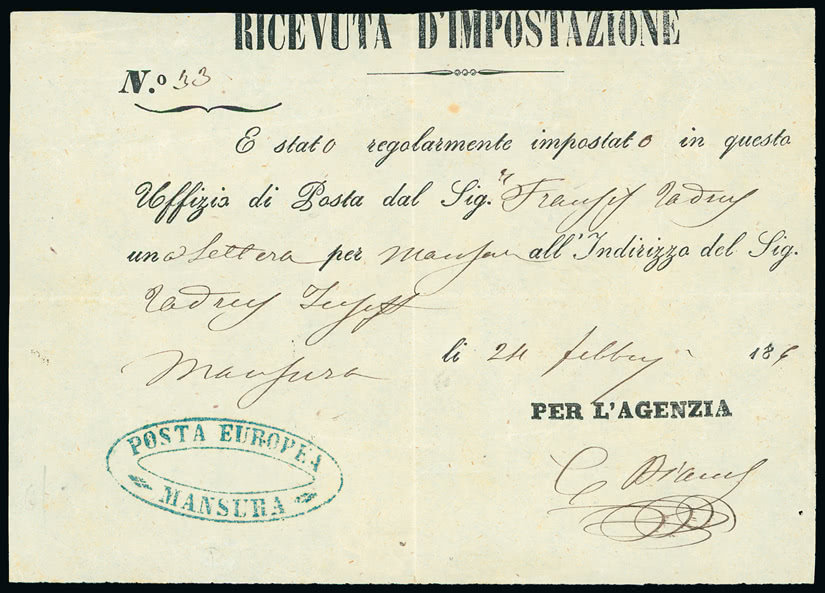 RICEVUTA D'IMPOSTAZIONE
N.º 33
E stato regolarmente impostato in questo
Uffizio di Posta dal Sig.r
una Lettera per Mansura all'Indirizzo del Sig.
Mansura
li 24 186
PER L'AGENZIA
POSTA EUROPEA
MANSURA